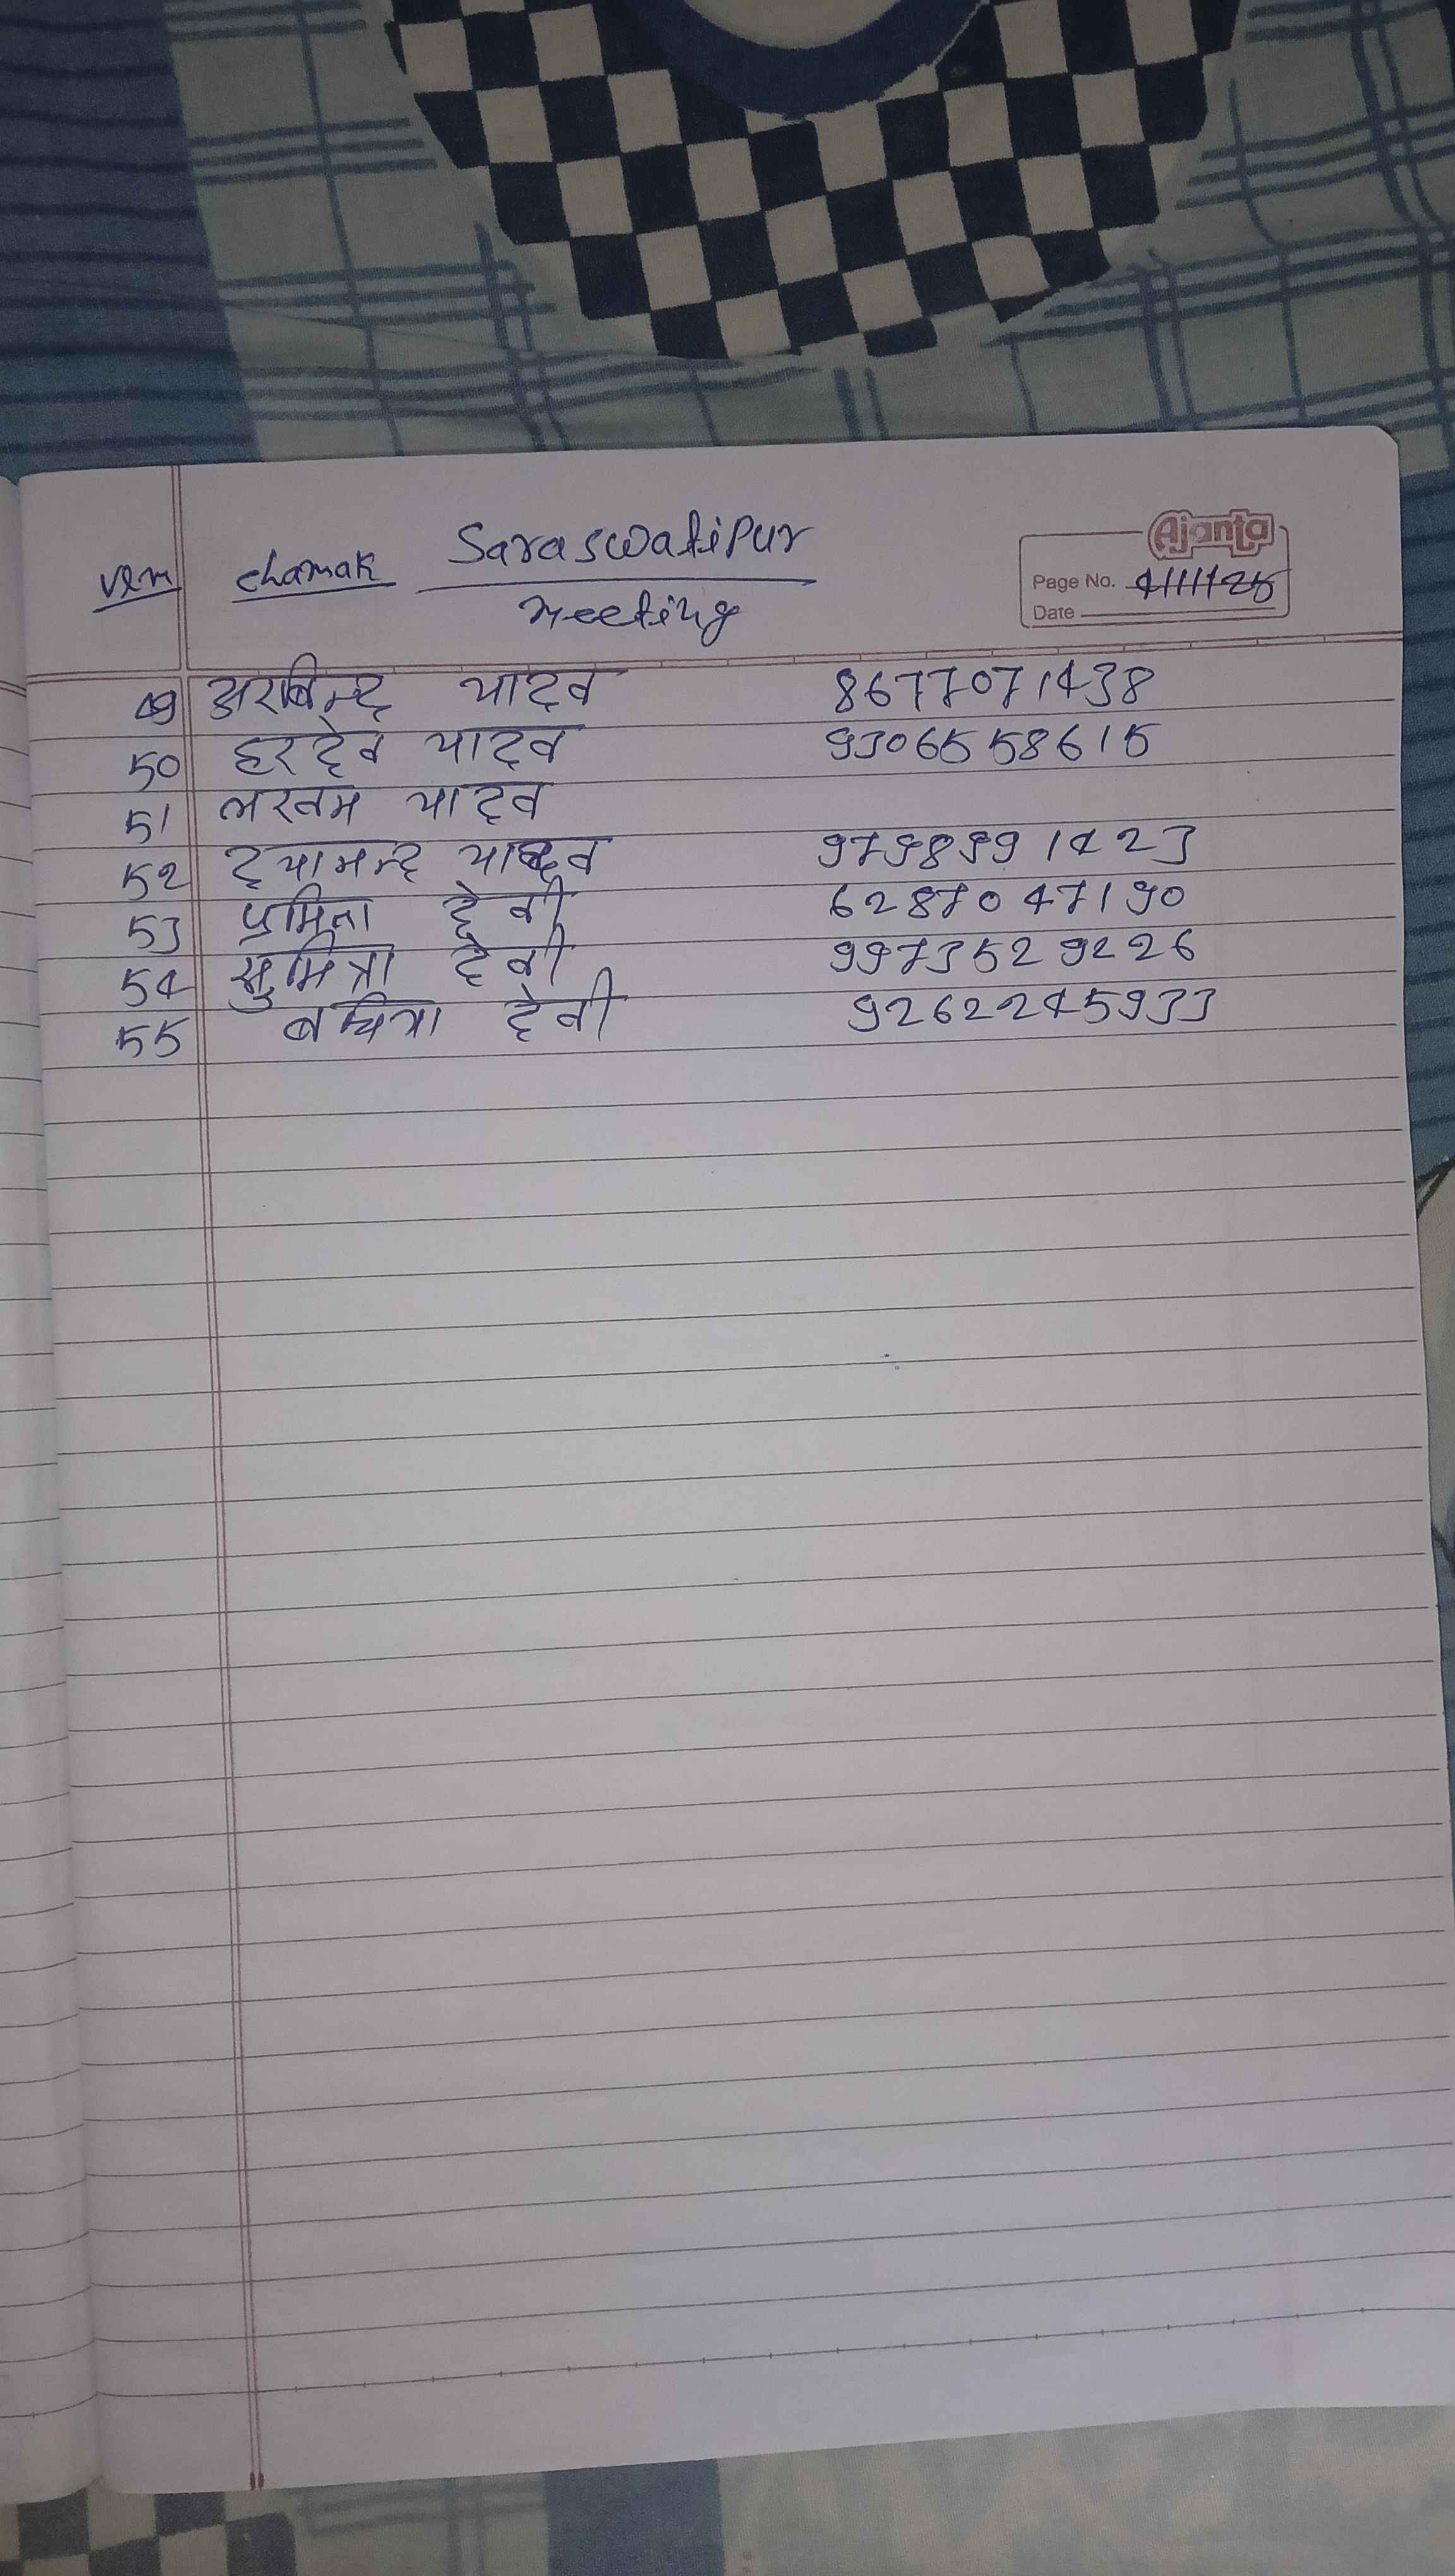 Saraswatipur
Ajanta
vem chamak
Page No. 4/11/25
meeting
Date
49 अरबिन्द यादव 8677071438
50 हरदेव यादव 9306558615
51 लखन यादव
52 दयानन्द यादव 9798991423
53 प्रमिला देवी 6287047190
54 सुमित्रा देवी 9973529226
55 बचित्रा देवी 9262245933